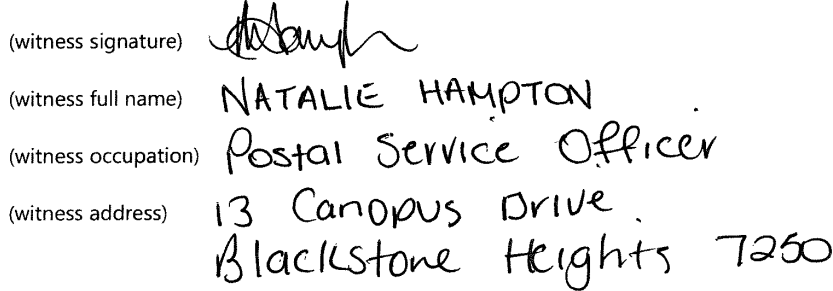 (witness signature)
(witness full name) NATALIE HAMPTON
(witness occupation) Postal Service Officer
(witness address) 13 Canopus Drive
Blackstone Heights 7250